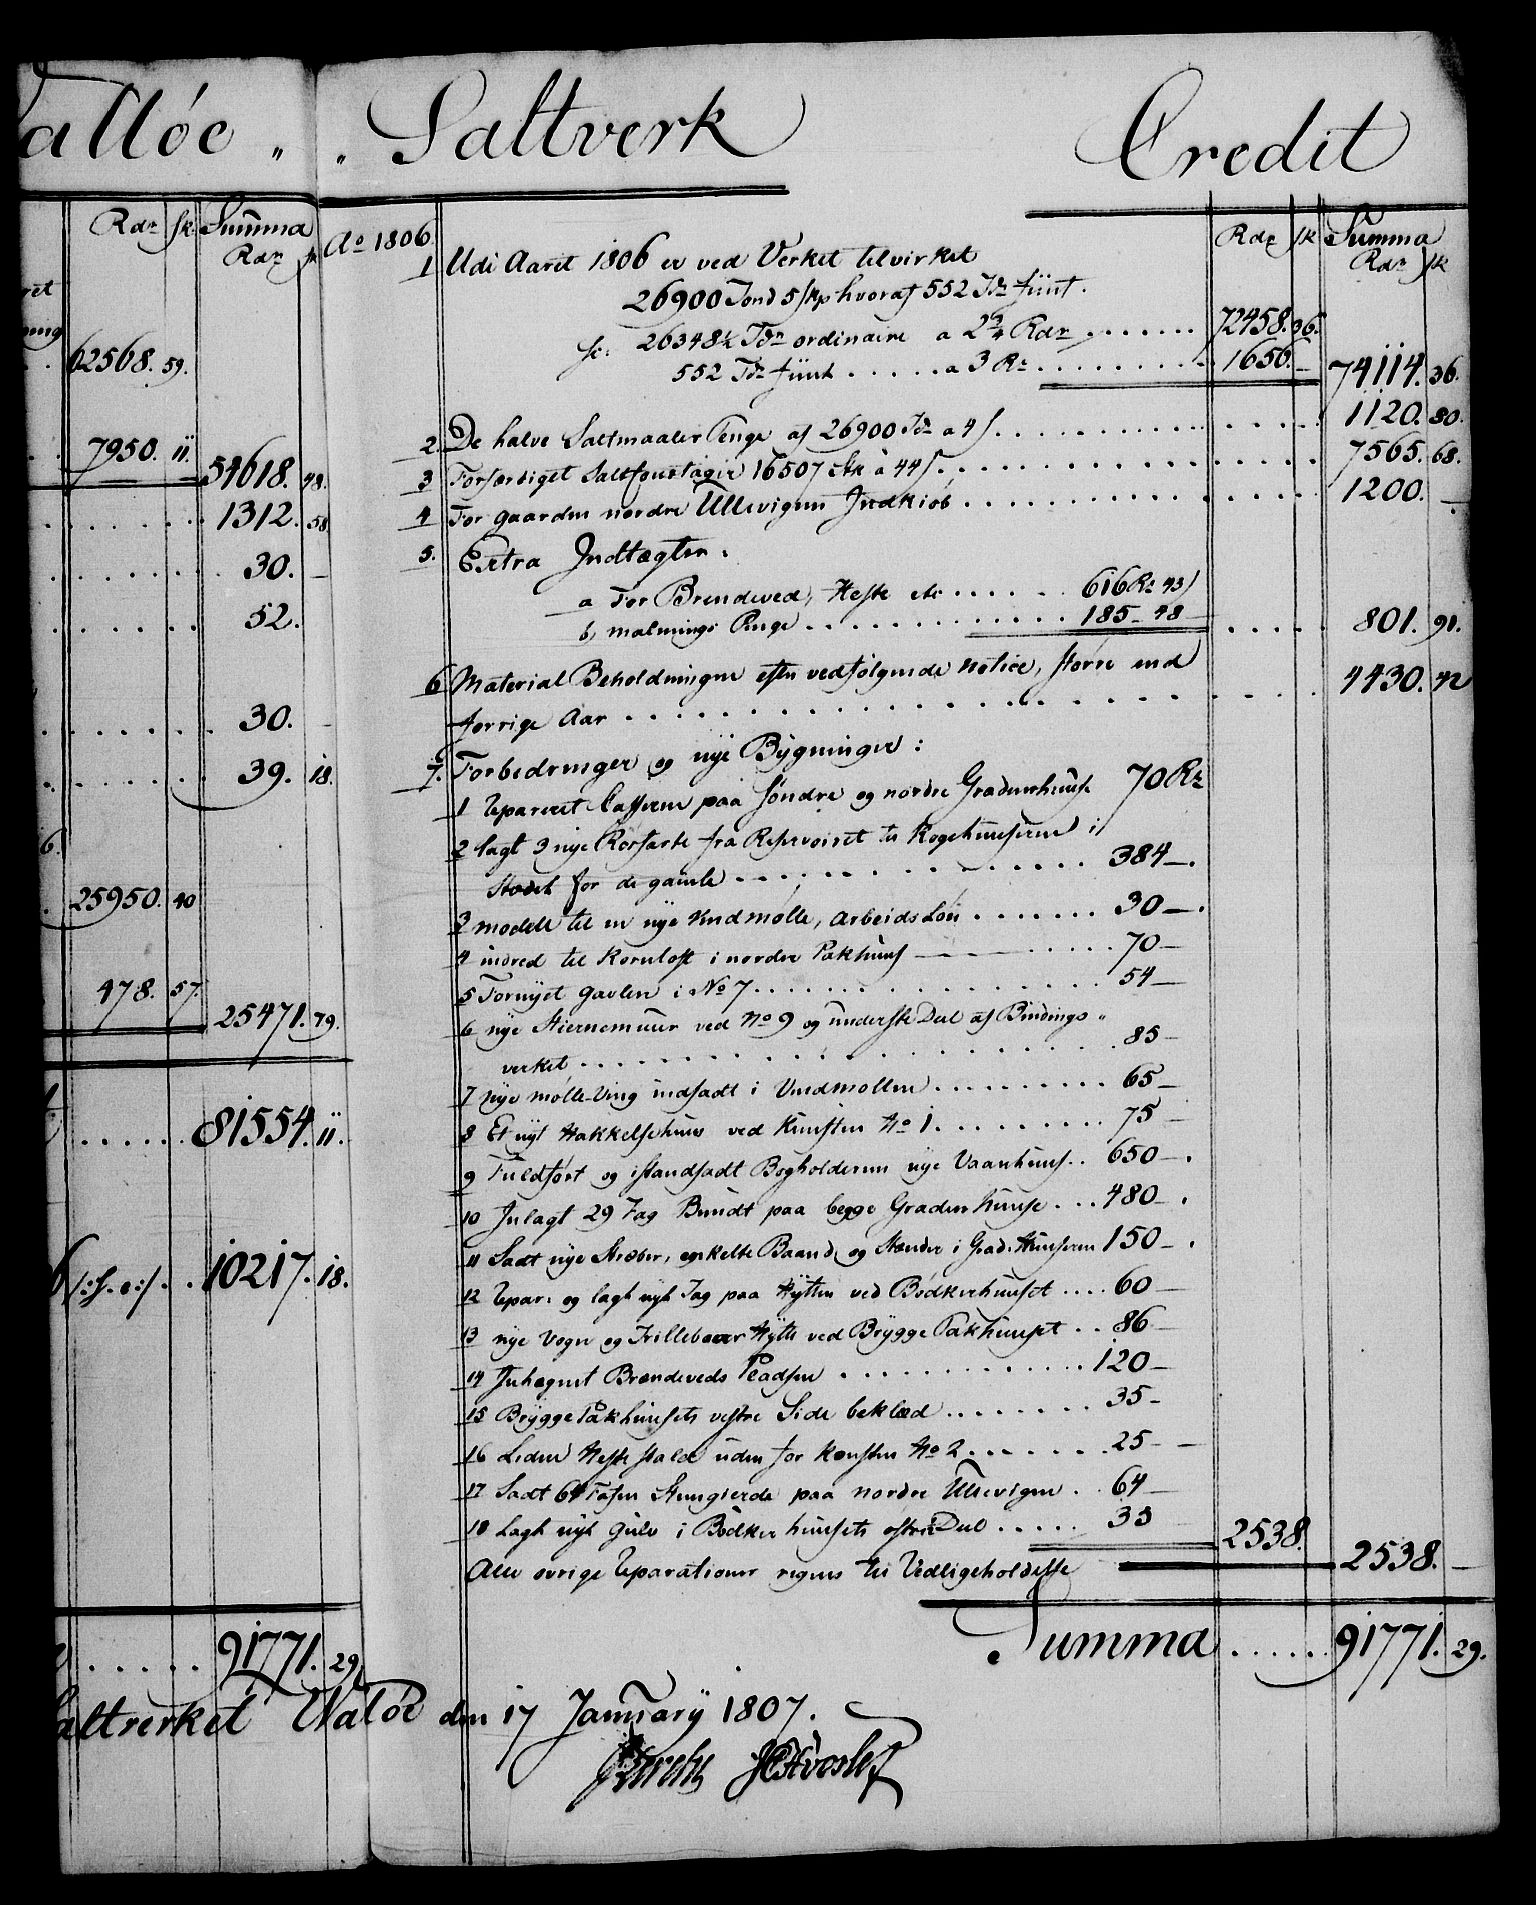 alløe „ „ Saltverk Credit
Rdr sk Summa
Rdr sk
62568. 59.
7950. 11. 54618. 48.
1312. 58
30. –
52.
30. –
39. 18.
25950. 40
478. 57. 25471. 79.
81554. 11.
10217. 18.
91771. 29
Saltverket Valøe den 17 January 1807.
Ao 1806.
Rdr sk Summa
Rdr sk
1 Udi Aaret 1806 er ved Verket tilvirket
26900 Tønd 5 skp hvoraf 552 Tdr fiint.
26348 5/8 Tdr ordinaire a 2 3/4 Rdr 72458. 36.
552 Tdr fiint a 3 Rr 1656. – 74114. 36.
2. De halve Saltmaaler Penge af 26900 Tdr a 4 s 1120. 80.
3 Forfærdiget Saltfoustager 16507 Stk a 44 s 7565. 68.
4 For gaarden nordre Ullevigens Indkiøb 1200. –
5. Extra Indtægter.
a For Brendeved, Heste etc 616 Rr 43 s
b, malnings Penge 185 – 48 801. 91.
6 Material Beholdningen efter vedfølgende Notice, større end
forrige Aar 4430. 42
7. Forbedringer og nye Bygninger:
1 Repareret Casserne paa søndre og nordre Graderhuuse 70 Rr
2 lagt 3 nye Rørfarte fra Reservoiret til Kogehuuserne i
Stedet for de gamle 384 –
3 modell til en nye Vindmølle, ArbeidsLøn 30 –
4 indred til Kornloft i nordre Pakhuus 70 –
5 Fornyet gavlen i No 7 54 –
6 nye Hiernemuur ved No 9 og underste Deel af Bindings
verket 85 –
7 nye mølle-Ving indsadt i Vindmøllen 65 –
8 Et nyt Hakkelsehuus ved Kunsten No 1 75 –
9 Fuldført og istandsadt Bogholderens nye Vaanhuus 650 –
10 Inlagt 29 Fag Bundt paa begge Graderhuuse 480 –
11 Sadt nye Stræber, enkelte Baand, og Stender i Grad: Huuserne 150 –
12 Repar: og lagt nyt Tag paa Hytten ved Bødkerhuuset 60 –
13 nye Vogn og Trillebøer Hytte ved Brygge Pakhuuset 86
14 Inhegnet Brendeveds Pladsen 120 –
15 Brygge Pakhuusets vestre Side beklæd 35 –
16 Liden Heste stald uden for Kunsten No 2 25 –
17 Sadt 64 Fafen Steengierde paa nordre Ullevigen 64 –
18 Lagt nyt gulv i Bødker huusets østre Deel 35 2538. 2538. –
Alle øvrige Reparationer regnes til Vedligeholdelse
Summa 91771. 29.